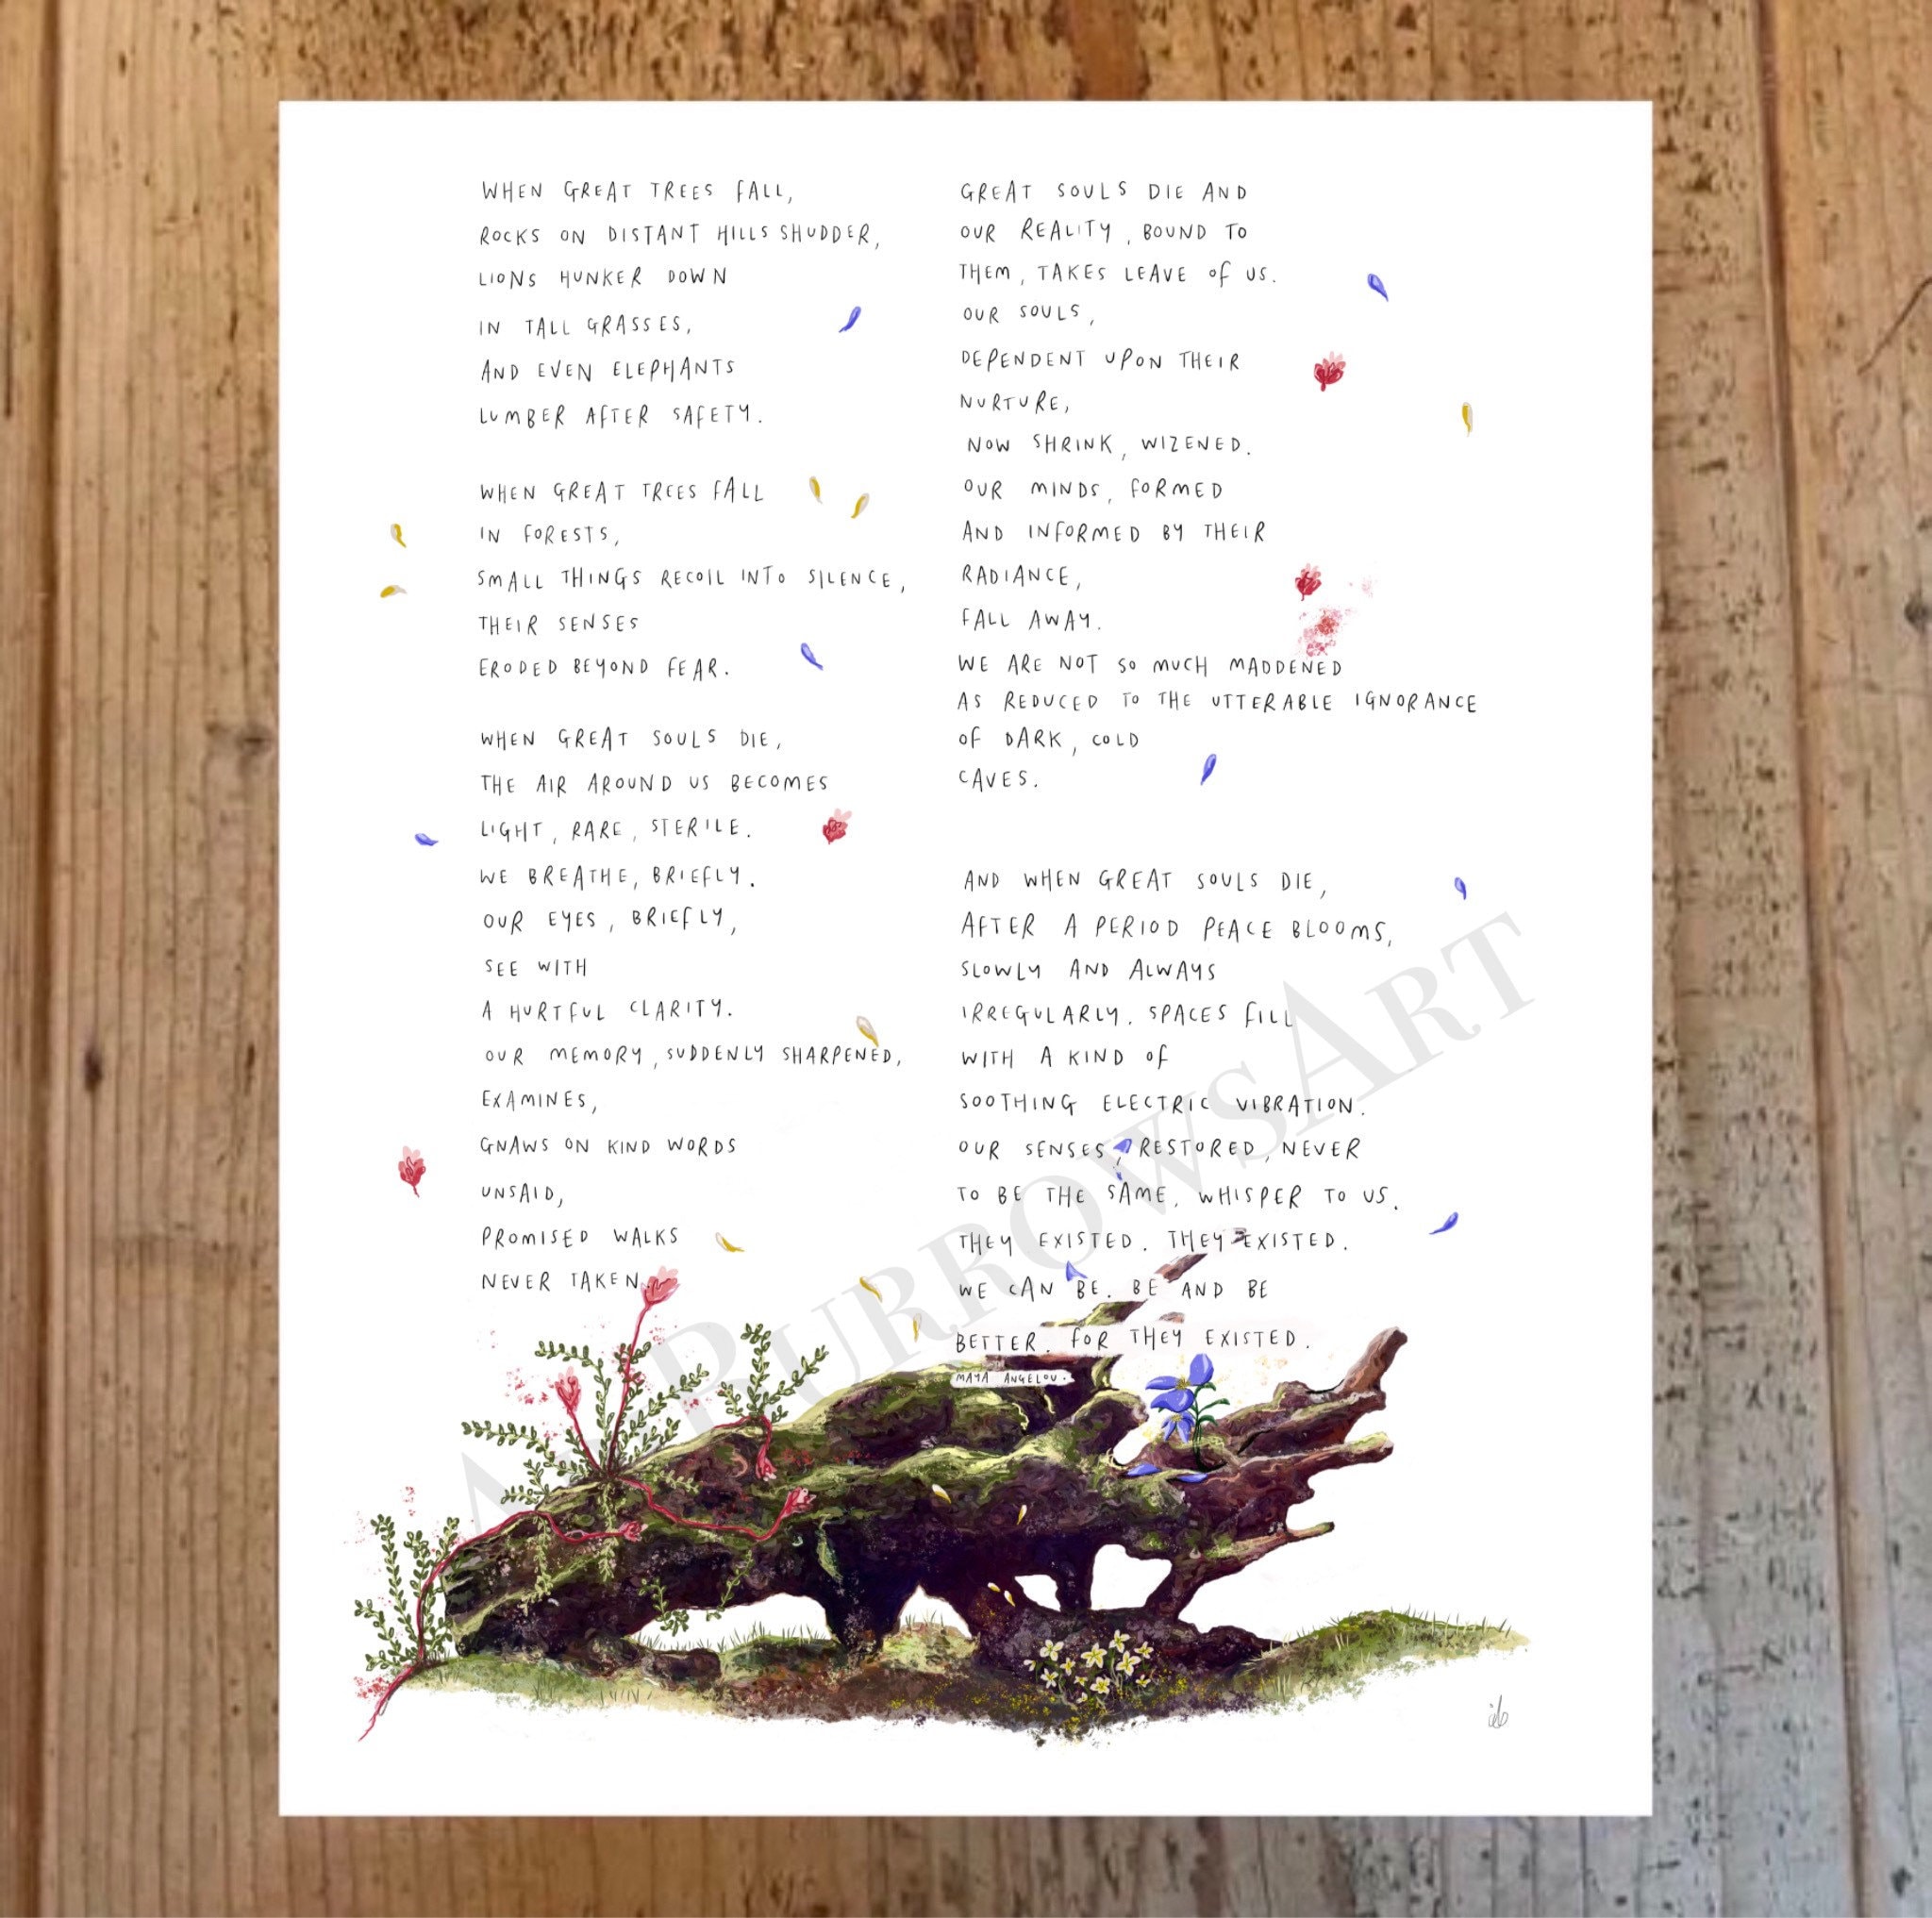 WHEN GREAT TREES FALL,
ROCKS ON DISTANT HILLS SHUDDER,
LIONS HUNKER DOWN
IN TALL GRASSES,
AND EVEN ELEPHANTS
LUMBER AFTER SAFETY.
WHEN GREAT TREES FALL
IN FORESTS,
SMALL THINGS RECOIL INTO SILENCE,
THEIR SENSES
ERODED BEYOND FEAR.
WHEN GREAT SOULS DIE,
THE AIR AROUND US BECOMES
LIGHT, RARE, STERILE.
WE BREATHE, BRIEFLY.
OUR EYES, BRIEFLY,
SEE WITH
A HURTFUL CLARITY.
OUR MEMORY, SUDDENLY SHARPENED,
EXAMINES,
GNAWS ON KIND WORDS
UNSAID,
PROMISED WALKS
NEVER TAKEN.
GREAT SOULS DIE AND
OUR REALITY, BOUND TO
THEM, TAKES LEAVE OF US.
OUR SOULS,
DEPENDENT UPON THEIR
NURTURE,
NOW SHRINK, WIZENED.
OUR MINDS, FORMED
AND INFORMED BY THEIR
RADIANCE,
FALL AWAY.
WE ARE NOT SO MUCH MADDENED
AS REDUCED TO THE UTTERABLE IGNORANCE
OF DARK, COLD
CAVES.
AND WHEN GREAT SOULS DIE,
AFTER A PERIOD PEACE BLOOMS,
SLOWLY AND ALWAYS
IRREGULARLY. SPACES FILL
WITH A KIND OF
SOOTHING ELECTRIC VIBRATION.
OUR SENSES, RESTORED, NEVER
TO BE THE SAME, WHISPER TO US.
THEY EXISTED. THEY EXISTED.
WE CAN BE. BE AND BE
BETTER. FOR THEY EXISTED.
MAYA ANGELOU.
BURROWSART